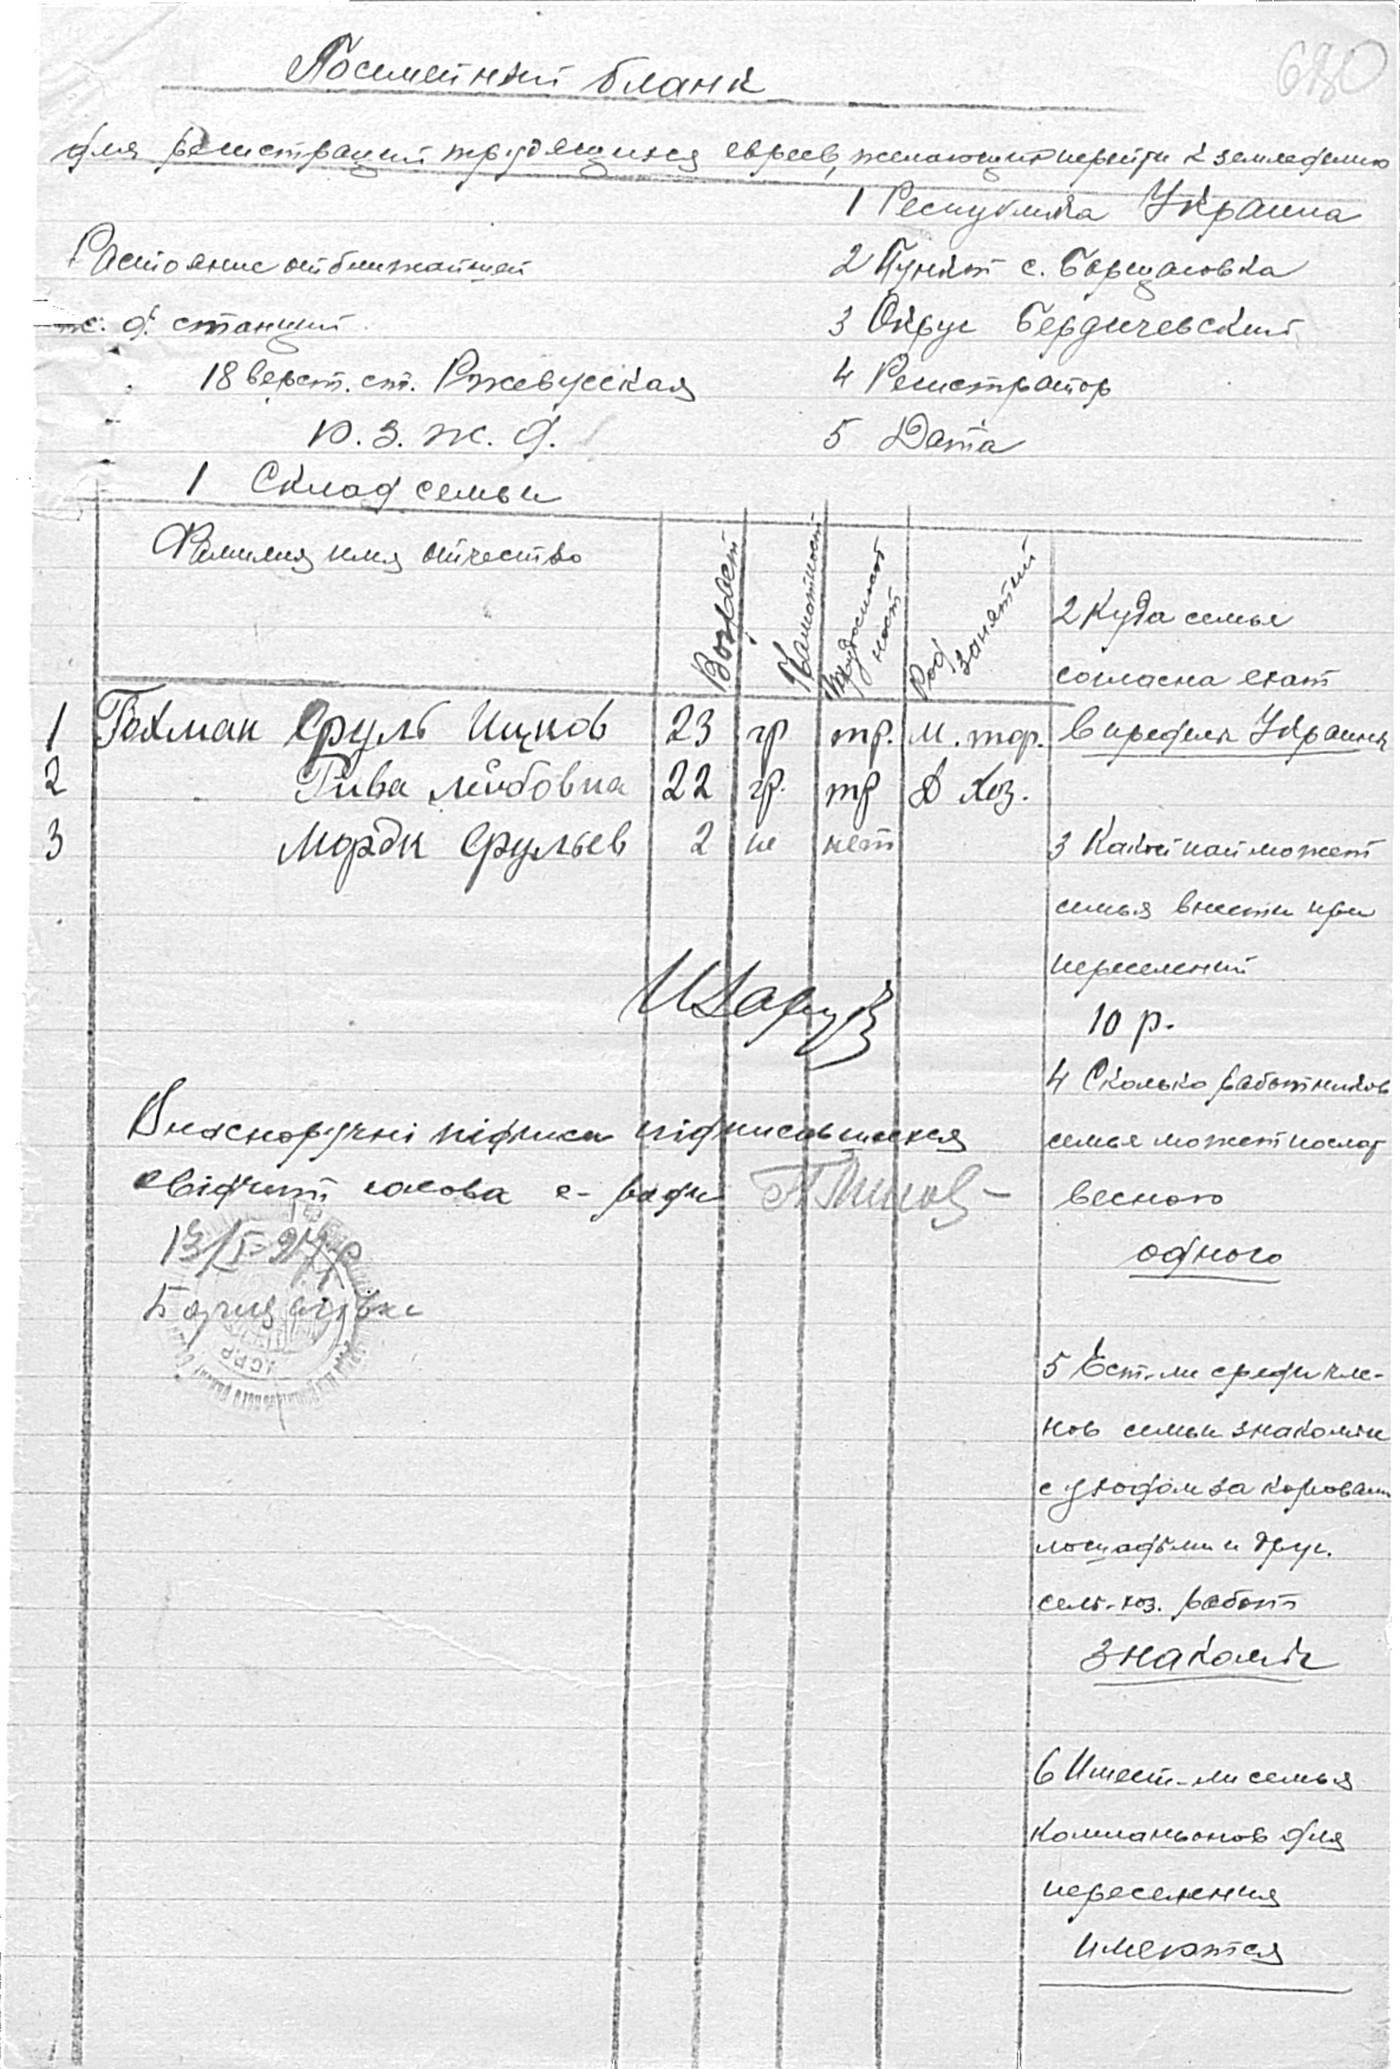 680
Посемейный бланк
для регистраций трудящихся евреев, желающих перейти к земледелию
1 Республика Украина
Растояние от ближайшей
2 Пункт с. Борщаговка
ж. д. станций
3 Округ Бердичевский
18 верст. ст. Ржевусская
4 Регистратор
Ю. З. Ж. Д.
5 Дата
1 Склад семьи
Фамилия имя отчество
Возраст
Грамотност
Трудоспособ
ност
Род занятий
2 Куда семья
согласна ехат
1 Гохман Сруль Ицков 23 гр тр. м. тор. В пределы Украины
2 Рива Лейбовна 22 гр. тр Д хоз.
3 Мордк Срульев 2 не нет
3 Какой пай может
семья внести при
переселений
10 р.
4 Сколько работников
семья может послат
весною
одного
Власноручні підписи підписавшихся
свідчит голова с-ради
13/I-27 р
Борщагівка
УСРР
5 Ест-ли среди чле-
нов семьи знакомы
с уходом за коровами
лошадьми и друг.
сель-хоз. работ
знакомы
6 Имеет-ли семья
компаньонов для
переселения
имеются